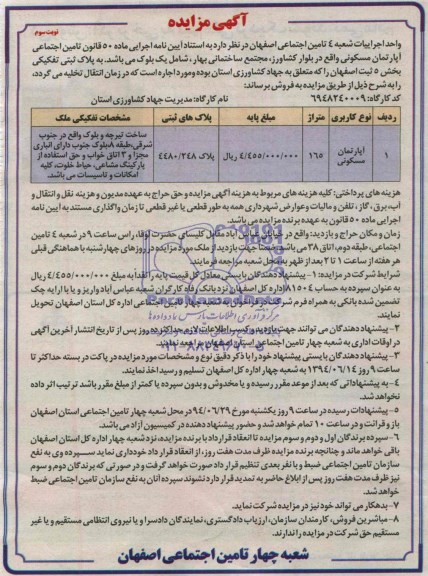 آگهی مزایده
نوبت سوم
واحد اجراییات شعبه ٤ تامین اجتماعی اصفهان در نظر دارد به استناد آیین نامه اجرایی ماده ٥٠ قانون تامین اجتماعی
آپارتمان مسکونی واقع در بلوار کشاورز، مجتمع ساختمانی بهار، شامل یک بلوک می‌باشد. به پلاک ثبتی تفکیکی
بخش ٥ ثبت اصفهان را که متعلق به جهاد کشاورزی استان بوده و مورد اجاره است که در زمان انتقال تخلیه می گردد،
را به شرح ذیل از طریق مزایده به فروش برساند:
کد کارگاه: ٦٩٤٨٢٤٠٠٠٩ نام کارگاه: مدیریت جهاد کشاورزی استان
ردیف نوع کاربری متراژ مبلغ پایه پلاک های ثبتی مشخصات تفکیکی ملک
١ آپارتمان مسکونی ١٦٥ ٤/٤٥٥/٠٠٠/٠٠٠ ریال پلاک ٤٤٨٠/٢٤٨
ساخت تیرچه و بلوک واقع در جنوب
شرقی، طبقه ٨ بلوک جنوب دارای انباری
مجزا و ٣ اتاق خواب و حق استفاده از
پارکینگ مشاعی، حیاط خلوت، کلیه
امکانات و تاسیسات می باشد.
هزینه های پرداختی: کلیه هزینه های مربوط به هزینه آگهی مزایده و حق حراج به عهده مدیون و هزینه نقل و انتقال و
آب، برق، گاز، تلفن و مالیات و عوارض شهرداری همه به طور قطعی یا غیر قطعی تا زمان واگذاری مستند به آیین نامه
اجرایی ماده ٥٠ قانون به عهده برنده مزایده می باشد.
زمان و مکان حراج و بازدید: واقع در خیابان عباس آباد مقابل کلیسای حضرت لوقا، راس ساعت ٩ در شعبه ٤ تامین
اجتماعی، طبقه دوم، اتاق ٣٨ می باشد. ضمنا جهت بازدید از ملک مورد مزایده در روزهای چهارشنبه با هماهنگی قبلی
هر هفته از ساعت ١ تا ٢ بعد از ظهر به محل شعبه مراجعه فرمایید.
شرایط شرکت در مزایده: ١- پیشنهاد دهندگان بایستی معادل کل قیمت پایه را نقدا به مبلغ ٤/٤٥٥/٠٠٠/٠٠٠ ریال
به عنوان سپرده به حساب ٨١٥٠٤ اداره کل اصفهان نزد بانک رفاه کارگران شعبه عباس آباد واریز و یا با ارایه چک
تضمین شده بانکی به همراه فرم شرکت در فروش به شعبه چهار تامین اجتماعی اداره کل استان اصفهان تحویل
نمایند.
٢- پیشنهاد دهندگان می توانند جهت بازدید و کسب اطلاعات لازم حداکثر ده روز پس از تاریخ انتشار آخرین آگهی
در اوقات اداری به شعبه چهار تامین اجتماعی استان اصفهان مراجعه نمایند.
٣- پیشنهاد دهندگان بایستی پیشنهاد خود را با ذکر دقیق نوع و مشخصات مورد مزایده در پاکت در بسته حداکثر تا
ساعت ٩ روز ١٣٩٤/٠٦/١٤ به شعبه ٤ اداره کل اصفهان تسلیم و رسید اخذ نمایند.
٤- به پیشنهاداتی که بعد از موعد مقرر رسیده و یا مخدوش و بدون سپرده یا کمتر از مبلغ مقرر باشد ترتیب اثر داده
نخواهد شد.
٥- پیشنهادات رسیده در ساعت ٩ روز یکشنبه مورخ ٩٤/٠٦/٢٩ در محل شعبه چهار تامین اجتماعی استان اصفهان
باز و قرائت و در ساعت ١٠ تمام خواهد شد و حضور پیشنهاد دهنده در کمیسیون آزاد می باشد.
٦- سپرده برندگان اول و دوم و سوم مزایده تا انعقاد قرارداد با برنده مزایده، نزد شعبه چهار اداره کل استان اصفهان
باقی خواهد ماند و چنانچه برنده مزایده ظرف مدت هفت روز، از انعقاد قرار داد خودداری نماید سپرده وی به نفع
سازمان تامین اجتماعی ضبط و با نفر بعدی تنظیم قرار داد صورت خواهد گرفت و در صورتی که برندگان دوم و سوم
نیز ظرف مدت هفت روز پس از ابلاغ حاضر به تمدید قرار داد نشوند سپرده آنان به نفع سازمان تامین اجتماعی ضبط
خواهد شد.
٧- بدهکار می تواند خود نیز در مزایده شرکت نماید.
٨- مباشرین فروش، کارمندان سازمان، ارزیاب دادگستری، نمایندگان دادسرا و یا نیروی انتظامی مستقیم و یا غیر
مستقیم حق شرکت در مزایده را ندارند.
شعبه چهار تامین اجتماعی اصفهان